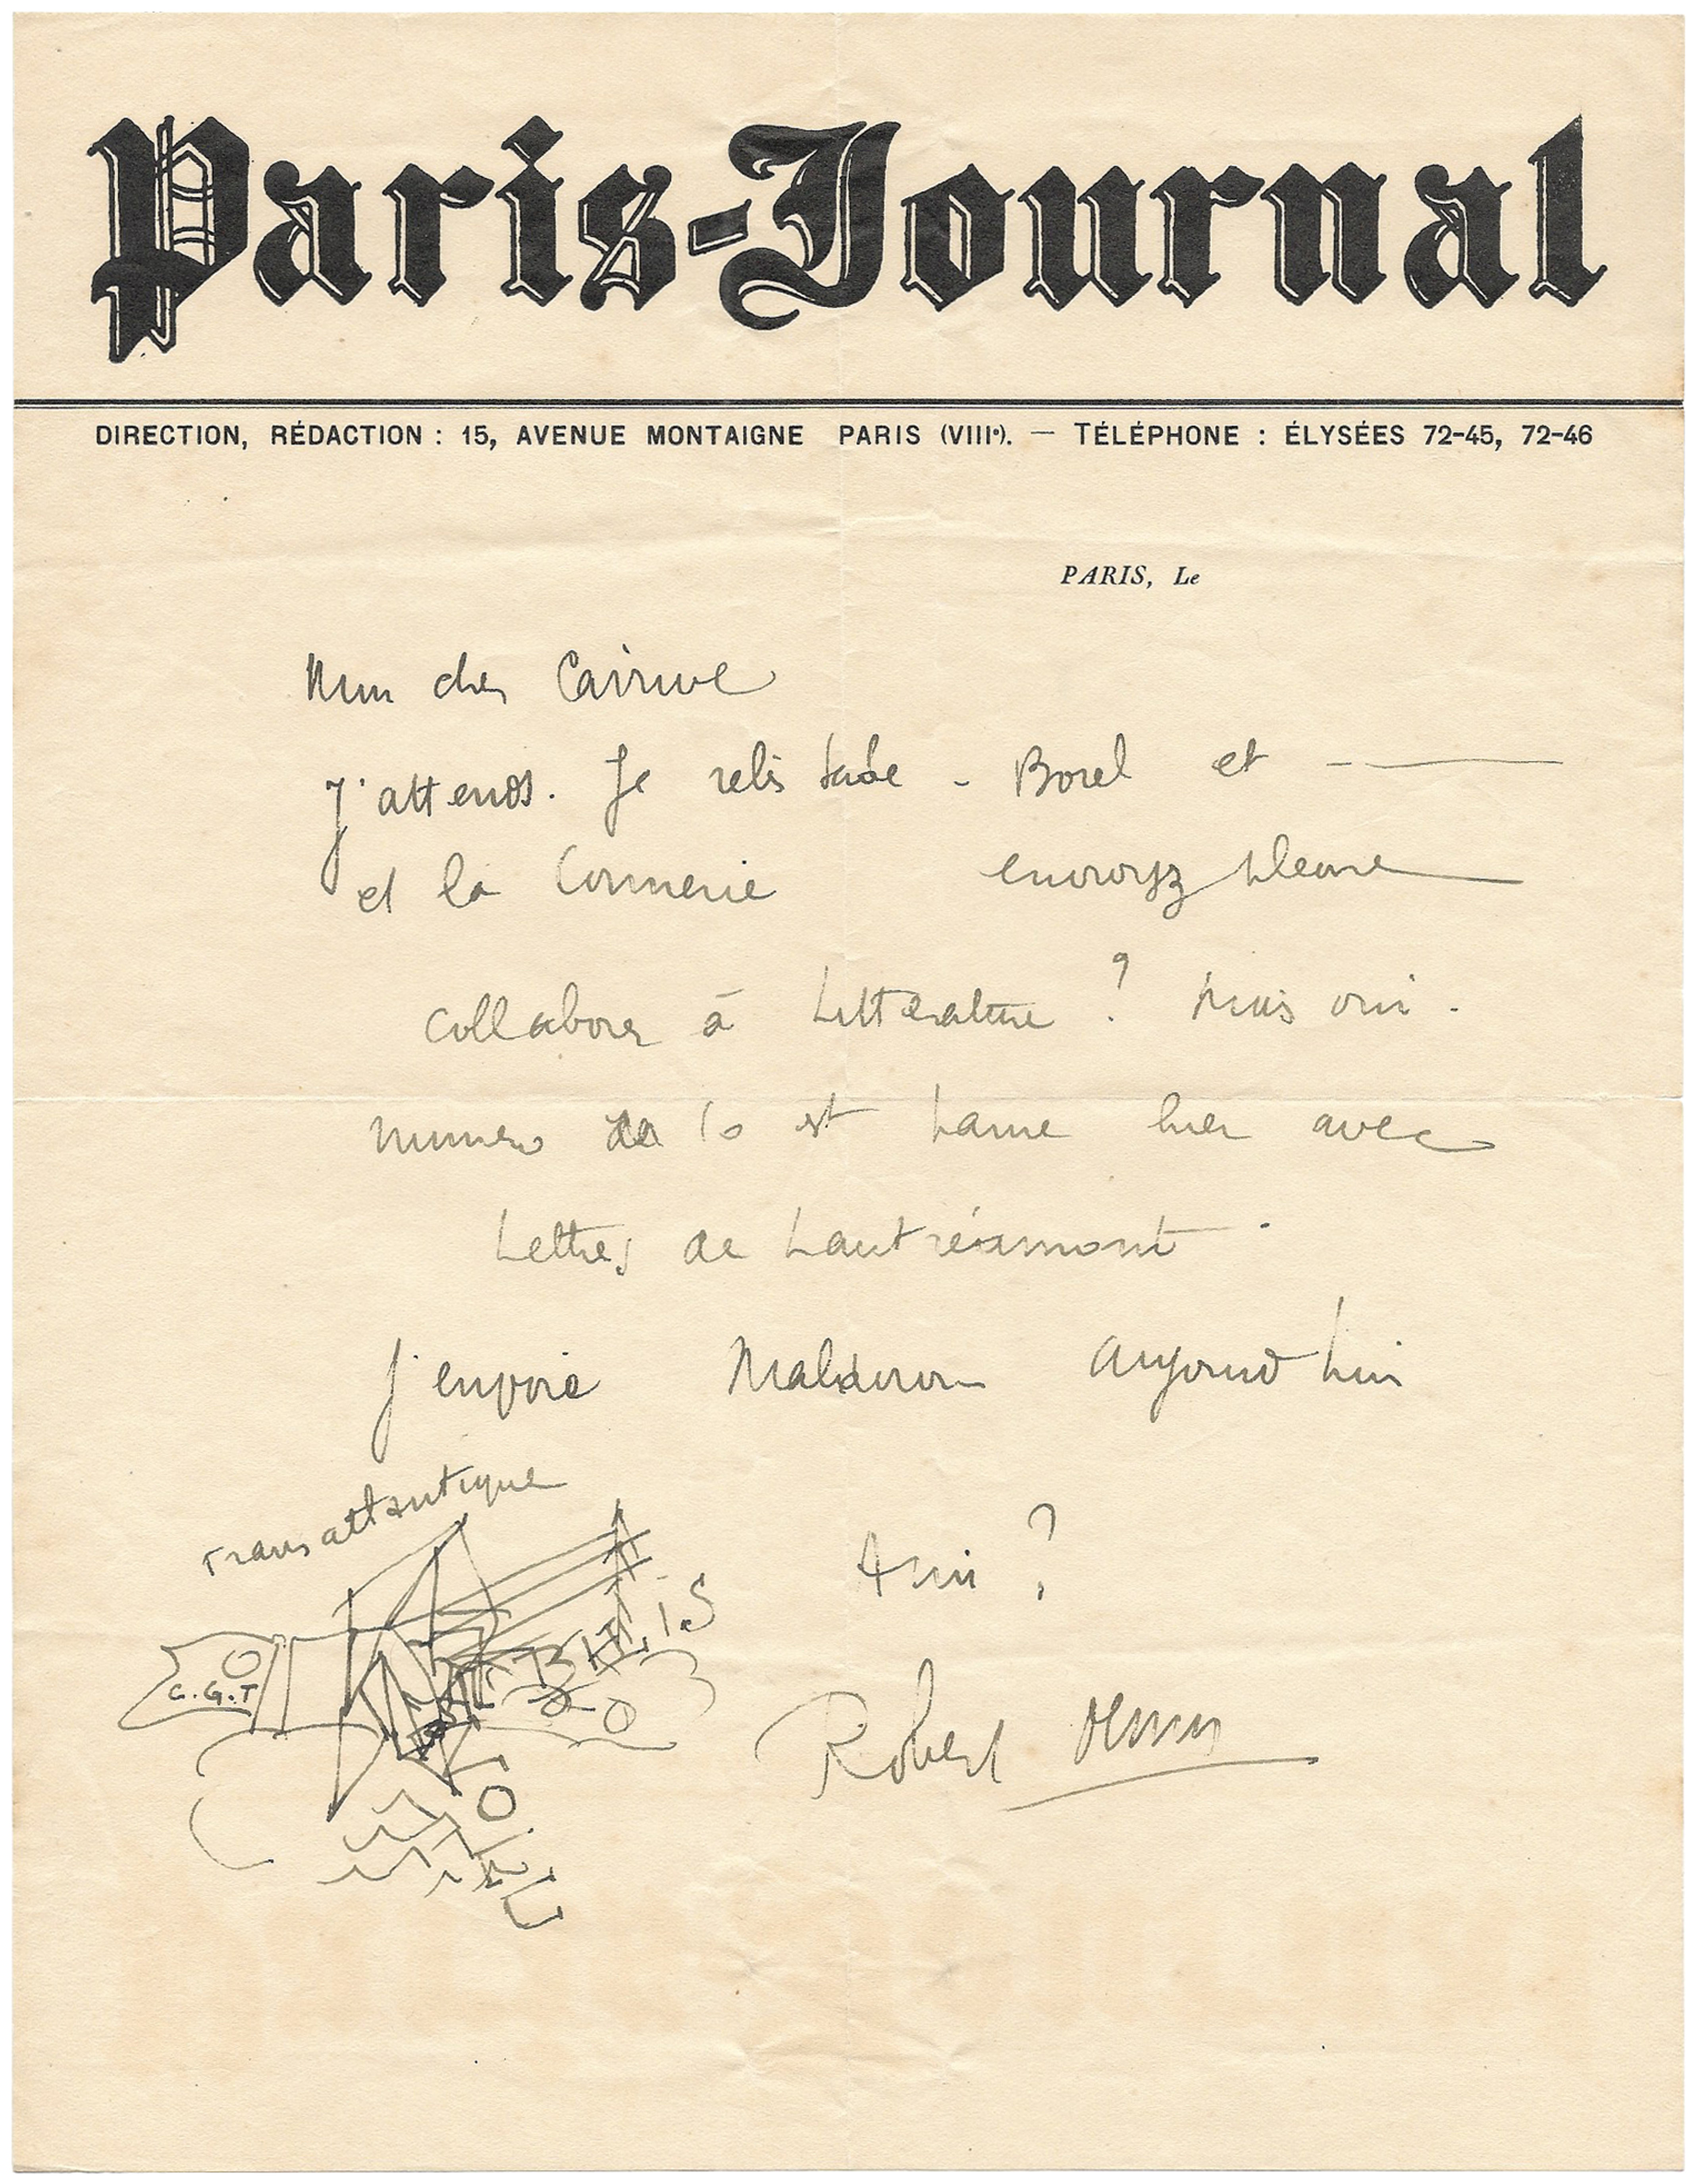 Paris-Journal
DIRECTION, RÉDACTION : 15, AVENUE MONTAIGNE PARIS (VIIIe). — TÉLÉPHONE : ÉLYSÉES 72-45, 72-46
PARIS, Le
Mon cher
J'attends. Je relis Sade - Borel et
et la Connerie envoyez
collaborer à Littérature ? Mais oui -
numéro de 10 est paru hier avec
Lettres de Lautréamont
J'envoie Maldoror aujourd'hui
Transatlantique
Ami ?
C.G.T
Robert Desnos